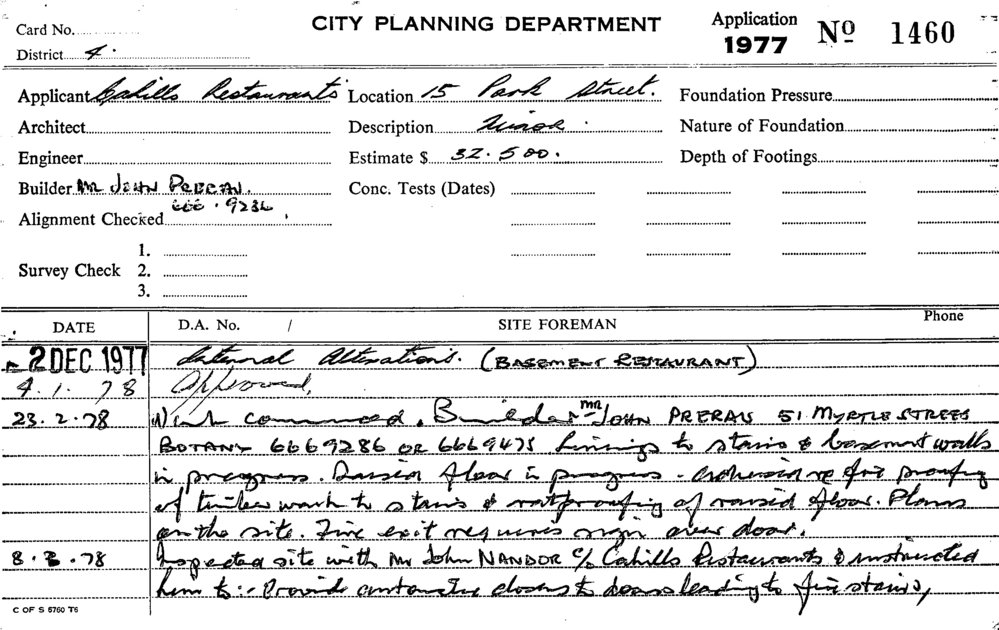 Card No.
CITY PLANNING DEPARTMENT
Application
1977
No 1460
District 4.
Applicant Cahills Restaurants
Location 15 Park Street.
Foundation Pressure
Architect
Description Minor.
Nature of Foundation
Engineer
Estimate $ 32.500.
Depth of Footings
Builder Mr JOHN
Conc. Tests (Dates)
666.9286
Alignment Checked
1.
Survey Check 2.
3.
DATE
D.A. No. /
SITE FOREMAN
Phone
2 DEC 1977
Internal Alterations. (BASEMENT RESTAURANT)
4.1.78
Approved.
23.2.78
Work commenced. Builder Mr JOHN 51 MYRTLE STREET
BOTANY 6669286 OR 6669475 Linings to stairs & basement walls
in progress. Raised floor in progress. re fire proofing
of timber work to stairs & ratproofing of raised floor. Plans
on the site. Fire exit requires sign over door.
8.3.78
Inspected site with Mr John NANDOR c/- Cahills Restaurants & instructed
him to:- Provide closers to doors leading to fire stairs,
C OF S 5760 T6